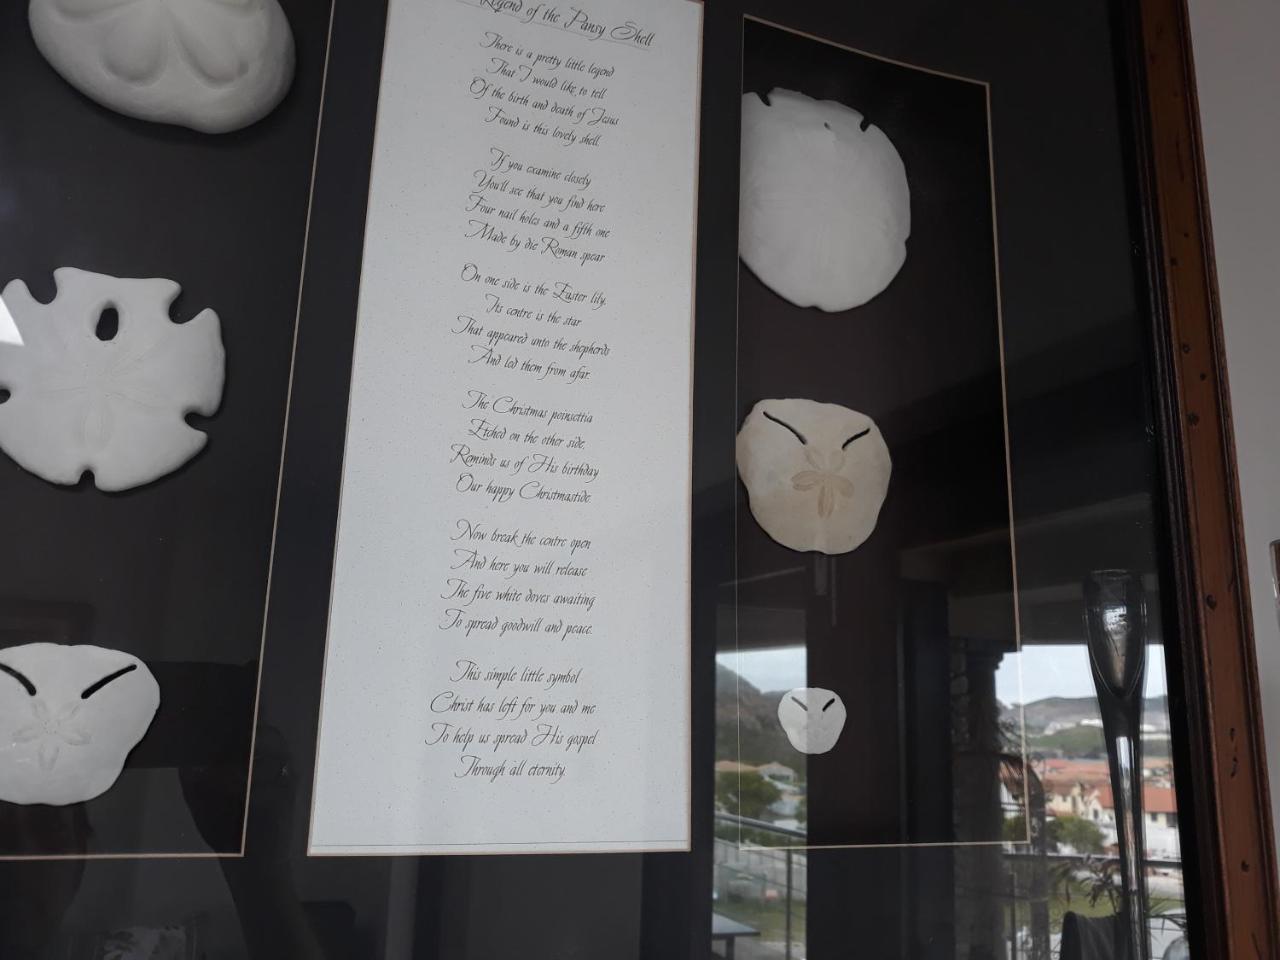 Legend of the Pansy Shell
There is a pretty little legend
That I would like to tell
Of the birth and death of Jesus
Found is this lovely shell.
If you examine closely
You'll see that you find here
Four nail holes and a fifth one
Made by die Roman spear
On one side is the Easter lily,
Its centre is the star
That appeared unto the shepherds
And led them from afar.
The Christmas poinsettia
Etched on the other side,
Reminds us of His birthday
Our happy Christmastide.
Now break the centre open
And here you will release
The five white doves awaiting
To spread goodwill and peace.
This simple little symbol
Christ has left for you and me
To help us spread His gospel
Through all eternity.